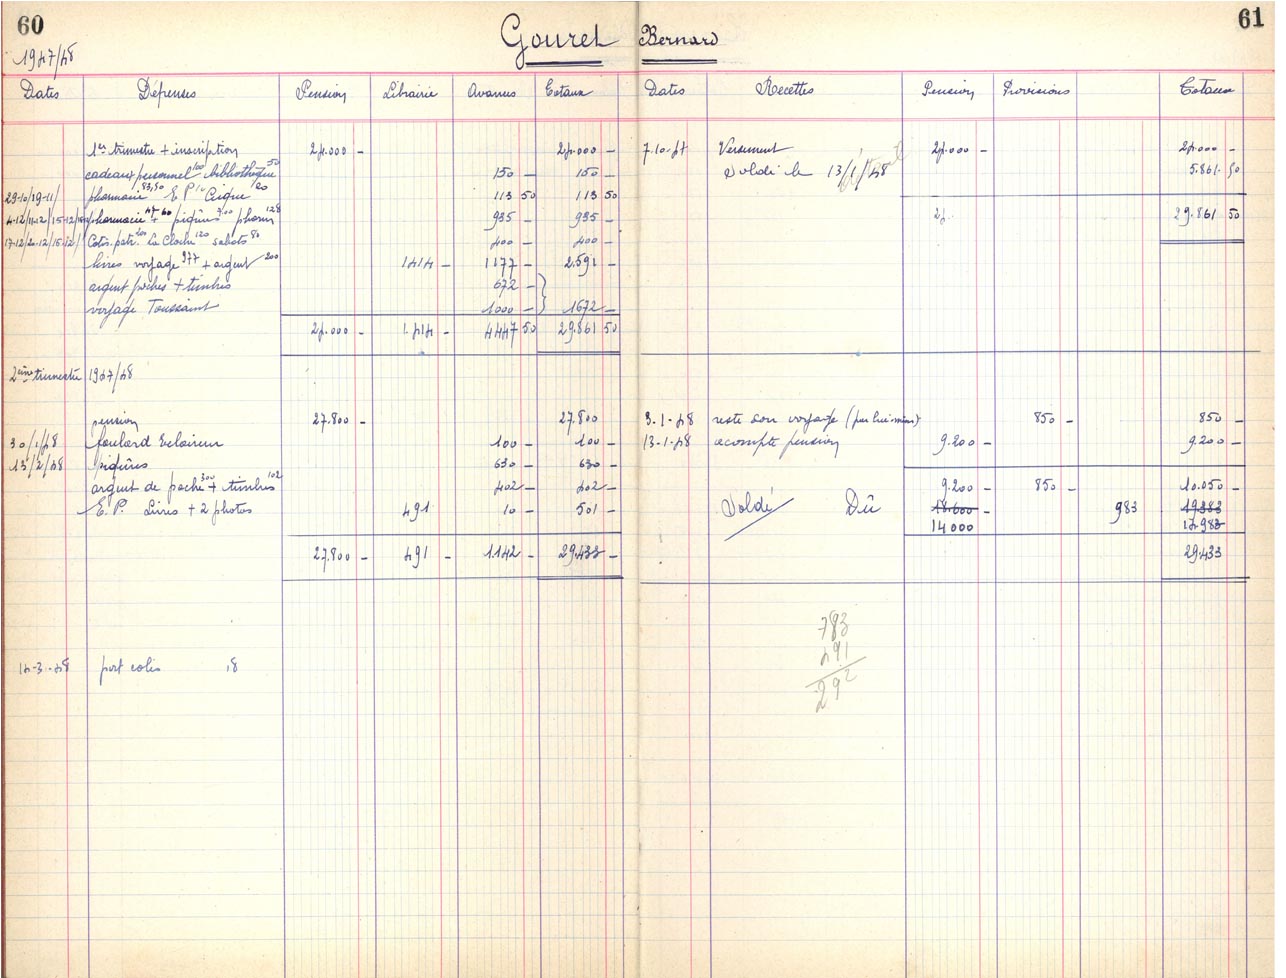 60
61
Gouret Bernard
1947/48
Dates Dépenses Pension Librairie Avances Totaux Dates Recettes Pension Provisions Totaux
1er trimestre + inscription 24.000 - 24.000 - 7.10.47 Versement 24.000 - 24.000 -
cadeaux personnel 100 bibliothèque 50 150 - 150 - Soldé le 13/1/48 5.861. 50
29-10/19-11/ pharmacie 83,50 E P 10 Cirque 20 113 50 113 50
4-12/11-12/15-12/ pharmacie 47 + 60 piqûres 700 pharm 128 935 - 935 - 24. 29.861 50
17-12/20-12/15-12/ Cotis. patr. 200 La Cloche 120 sabots 80 400 - 400 -
livres voyage 977 + argent 200 1414 - 1177 - 2.591 -
argent poches + timbres 672 -
voyage Toussaint 1000 - 1672 -
24.000 - 1.414 - 4447 50 29.861 50
2ème trimestre 1947/48
pension 27.800 - 27.800 3.1-48 reste son voyage (par lui-même) 850 - 850 -
30/1/48 foulard Eclaireur 100 - 100 - 13-1-48 acompte pension 9.200 - 9.200 -
13/2/48 piqûres 630 - 630 -
argent de poche 300 + timbres 102 402 - 402 - 9.200 - 850 - 10.050 -
E.P. Livres + 2 photos 491 10 - 501 - Soldé Dû 18.600 - 983 19383
14000 14.983
27.800 - 491 - 1.142 - 29.433 - 29.433
783
491
292
14-3-48 port colis 18